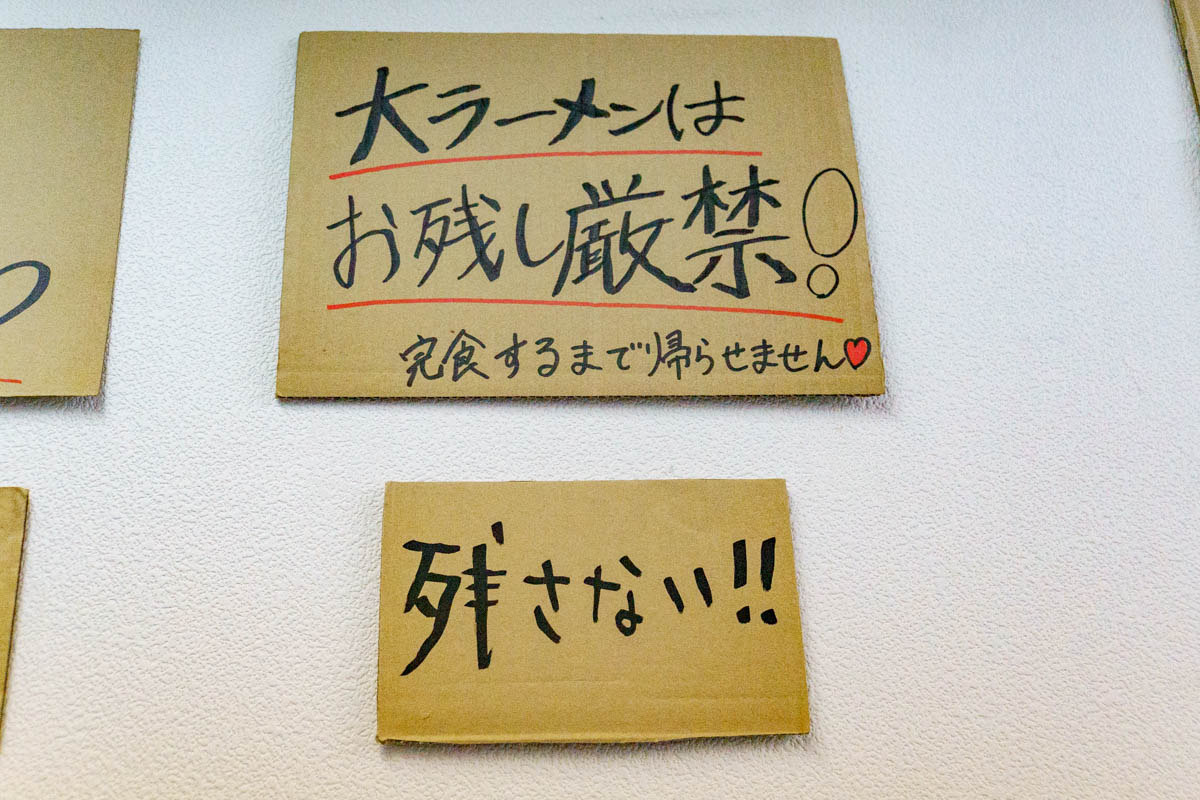 大ラーメンは
お残し厳禁!
完食するまで帰らせません♥
残さない!!